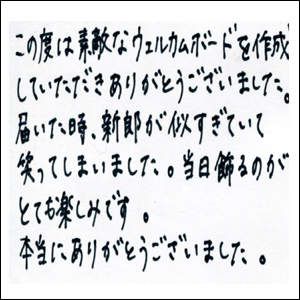 この度は素敵なウェルカムボードを作成
していただきありがとうございました。
届いた時、新郎が似すぎていて
笑ってしまいました。当日飾るのが
とてお楽しみです。
本当にありがとうございました。